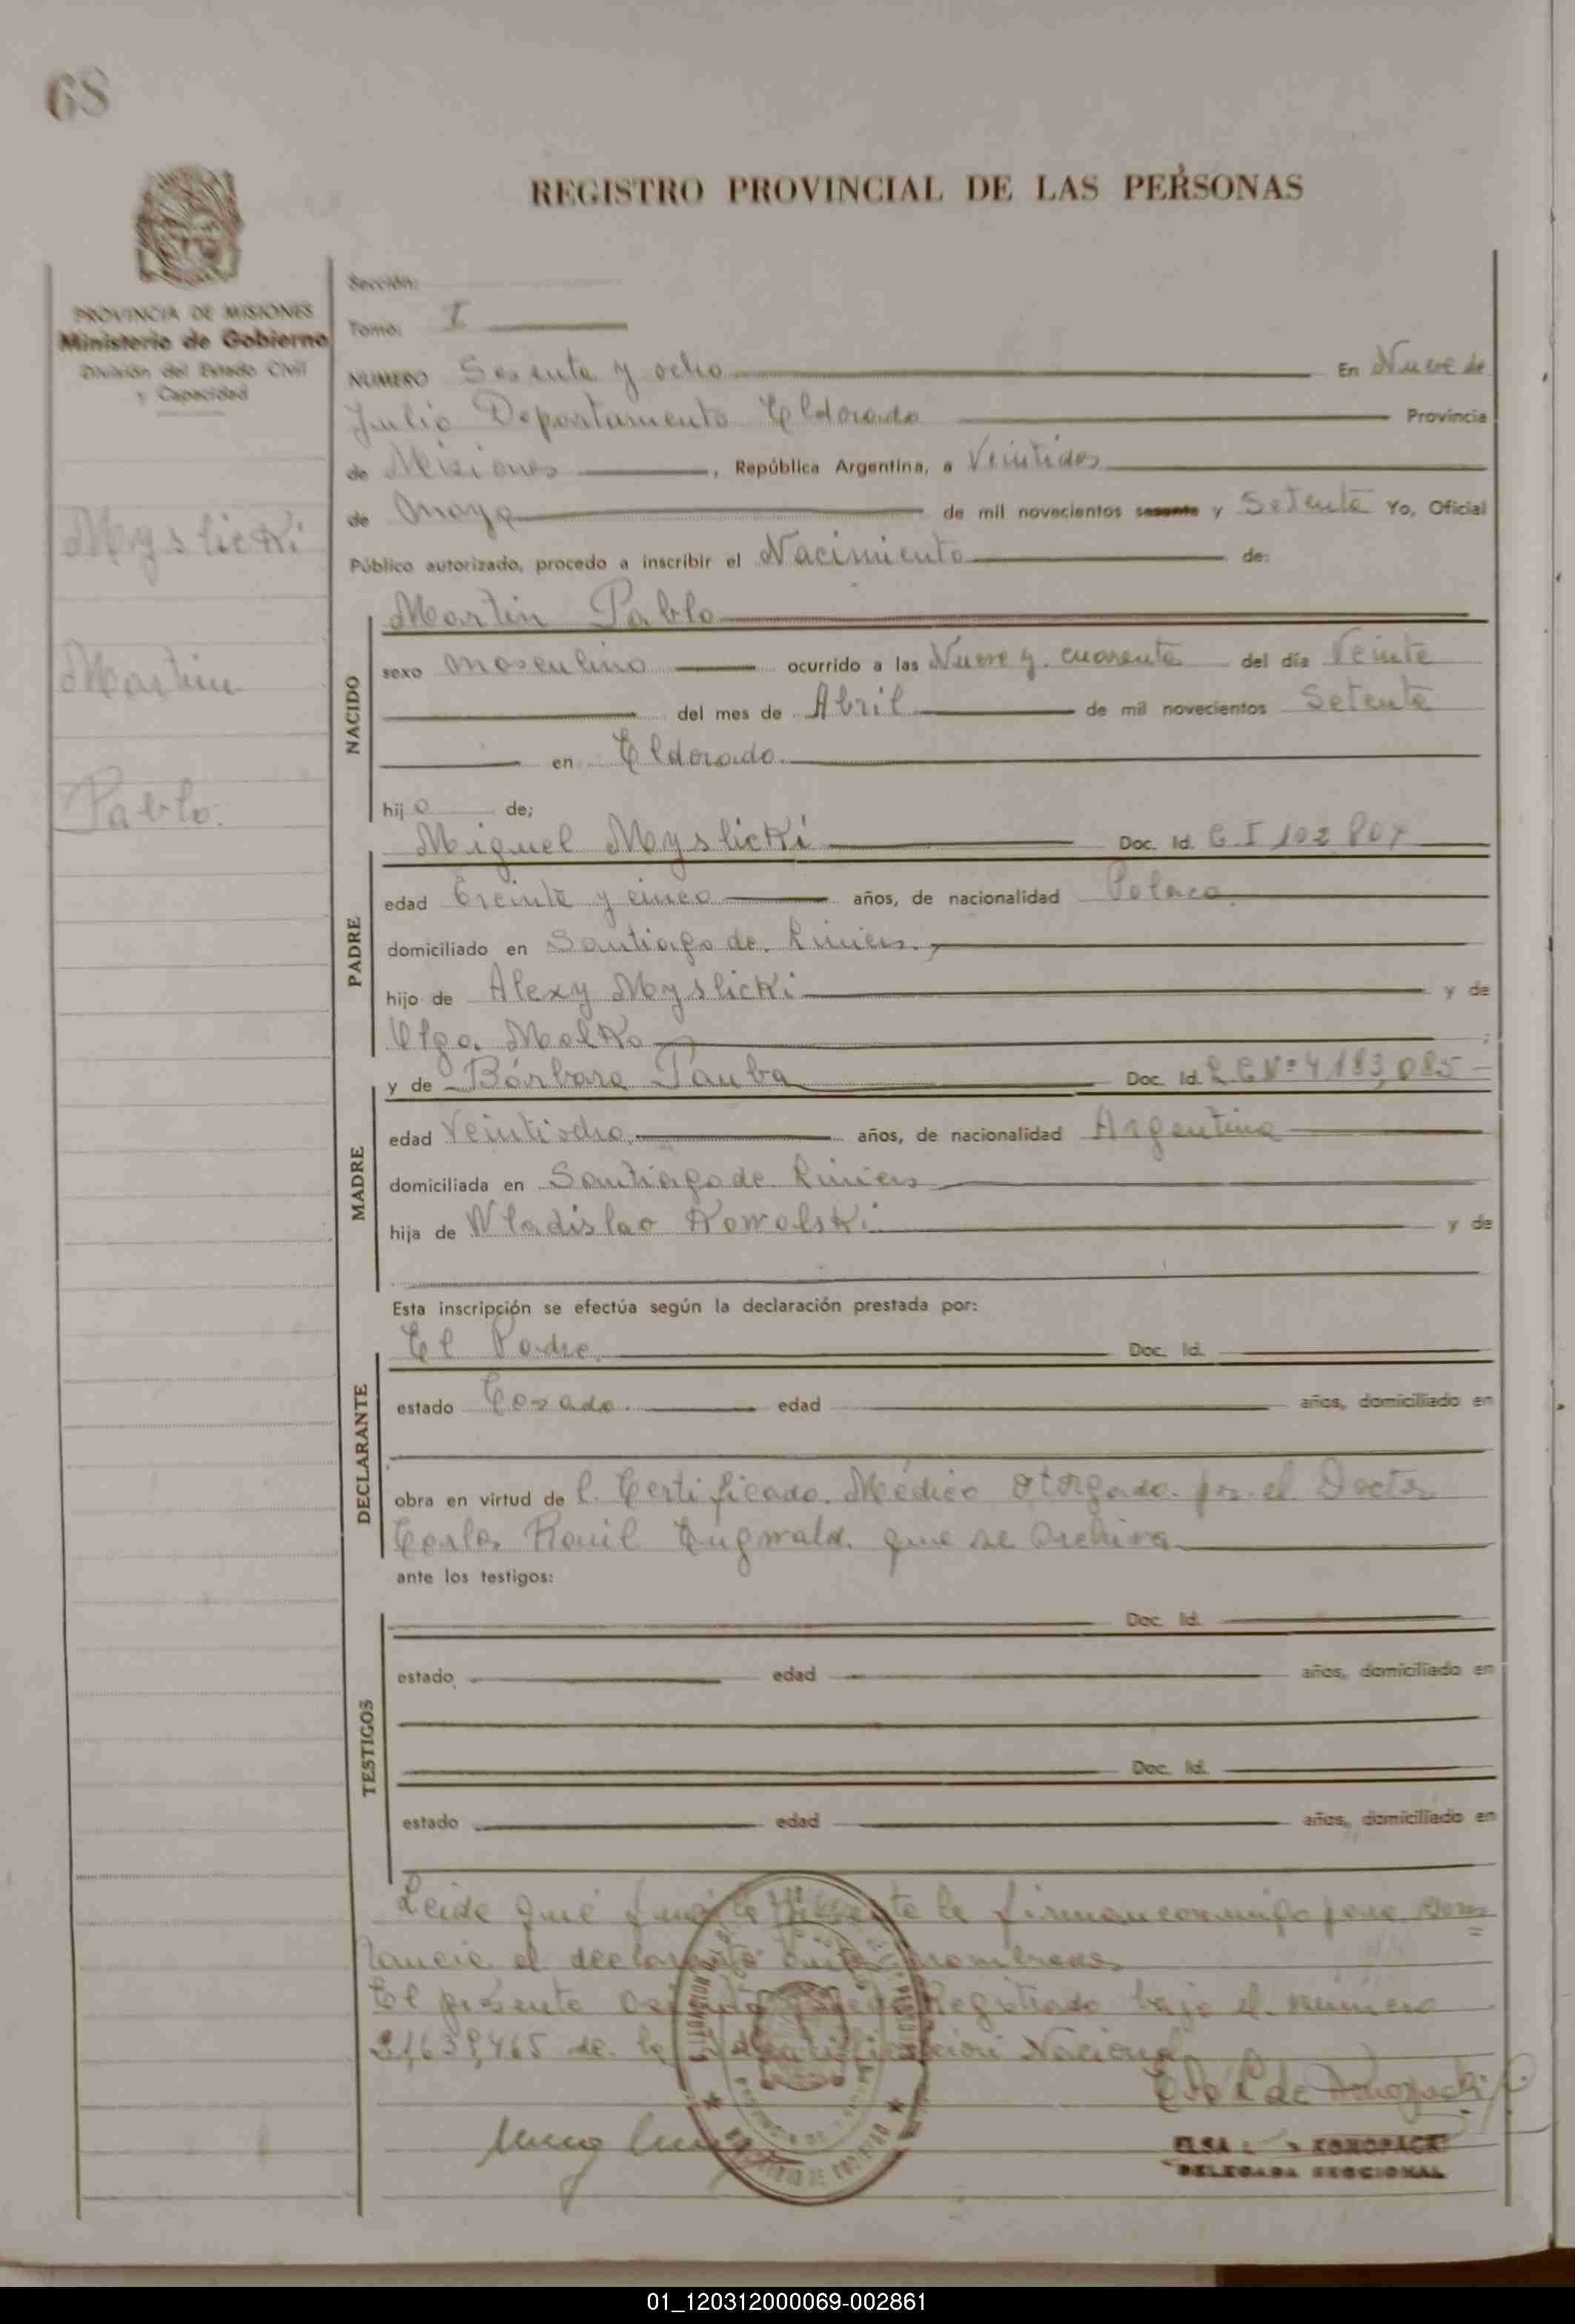 68
REGISTRO PROVINCIAL DE LAS PERSONAS
PROVINCIA DE MISIONES
Ministerio de Gobierno
División del Estado Civil
y Capacidad
Myslicki
Martin
Pablo.
Sección:
Tomo: I
NUMERO Sesenta y ocho En Nueve de
Julio Departamento Eldorado Provincia
de Misiones, República Argentina, a Veintidos
de Mayo de mil novecientos sesenta y Setenta Yo, Oficial
Público autorizado, procedo a inscribir el Nacimiento de:
NACIDO
Martin Pablo
sexo masculino ocurrido a las Nueve y cuarenta del día Veinte
del mes de Abril de mil novecientos Setenta
en Eldorado.
hijo de;
PADRE
Miguel Myslicki Doc. Id. C.I 102807
edad treinta y cinco años, de nacionalidad Polaca
domiciliado en Santiago de Liniers.
hijo de Alexy Myslicki y de
Olga Malko
MADRE
y de Bárbara Pauba Doc. Id. L.C Nº 4,183,085
edad Veintiocho años, de nacionalidad Argentina
domiciliada en Santiago de Liniers
hija de Wladislao Kowalski y de
Esta inscripción se efectúa según la declaración prestada por:
DECLARANTE
El Padre. Doc. Id.
estado Casado. edad años, domiciliado en
obra en virtud de l. Certificado Médico otorgado por el Doctor
Carlos Raúl que se archiva
ante los testigos:
TESTIGOS
Doc. Id.
estado edad años, domiciliado en
Doc. Id.
estado edad años, domiciliado en
Leida que fue la presente la firman conmigo para cons
tancia el declarante antes nombrado
El presente Registrado bajo el número
21,639,465 de la Identificación Nacional
ELSA KONOPACKI
DELEGADA SECCIONAL
01_120312000069-002861